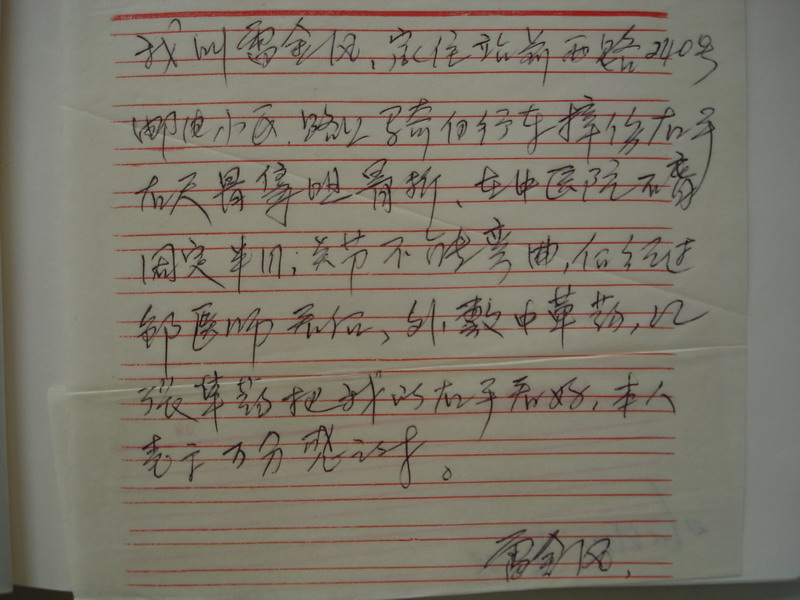 我叫雷金凤,家住站前西路240号
邮电小区.路上骑自行车摔伤右手
右尺骨鹰咀骨折、在中医院石膏
固定半月;关节不能弯曲,但经过
邹医师看后、外敷中草药,几
张草药把我的右手看好,本人
表示万分感谢。
雷金凤,